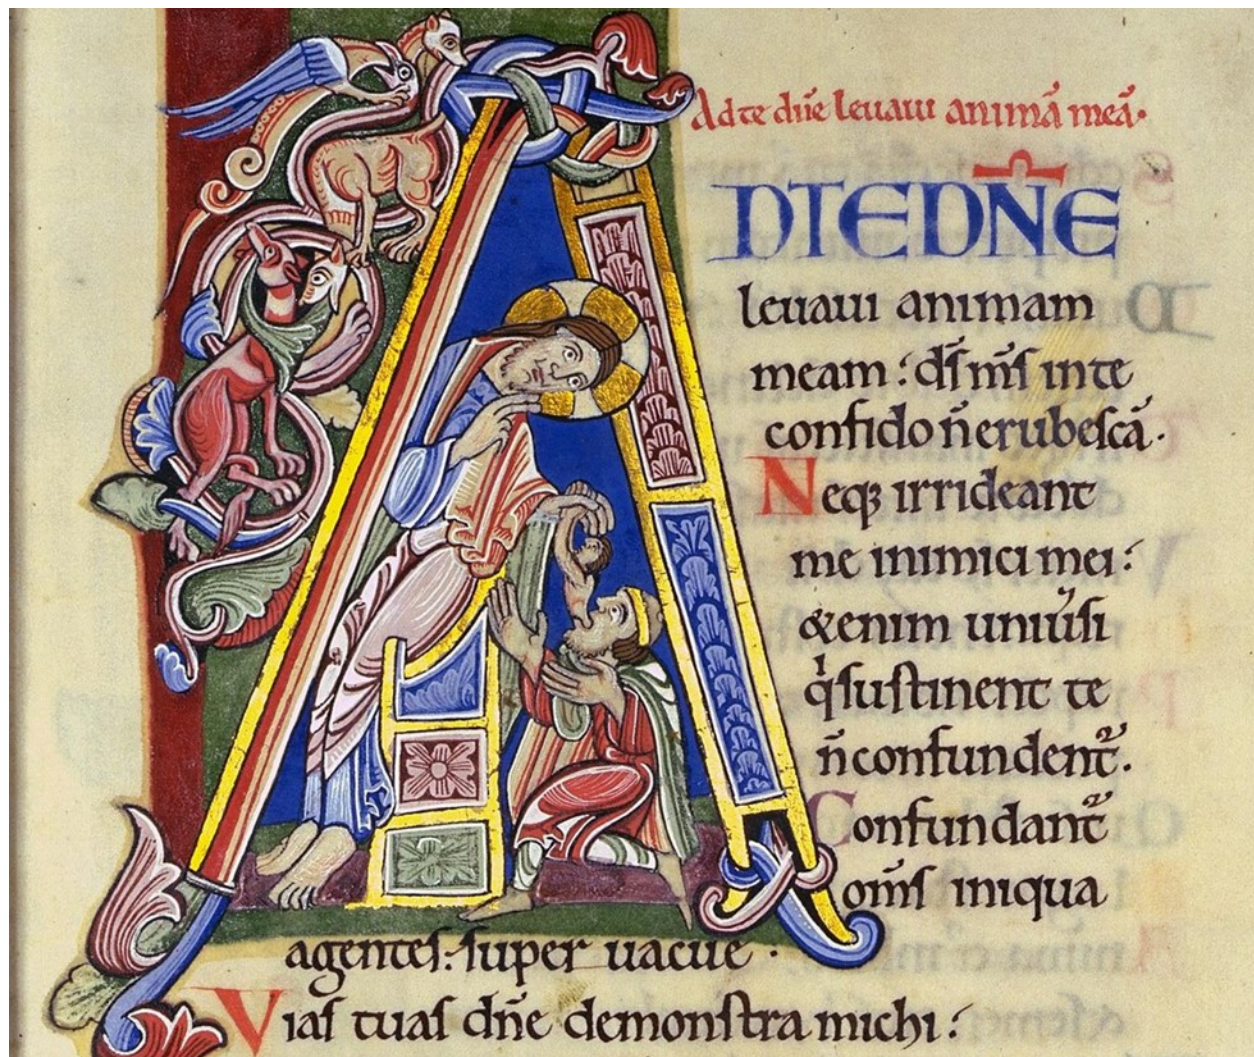 Ad te dn̄e leuaui animā meā.
AD TE DN̄E
leuaui animam
meam : dſ̄ mſ̄ in te
confido n̄ erubeſcā.
Neqꝫ irrideant
me inimici mei :
&enim uniu͛ſi
qͥ ſuſtinent te
n̄ confundent᷑.
Confundant᷑
om̄ſ iniqua
agenteſ : ſuper uacue .
Viaſ tuaſ dn̄e demonſtra michi :